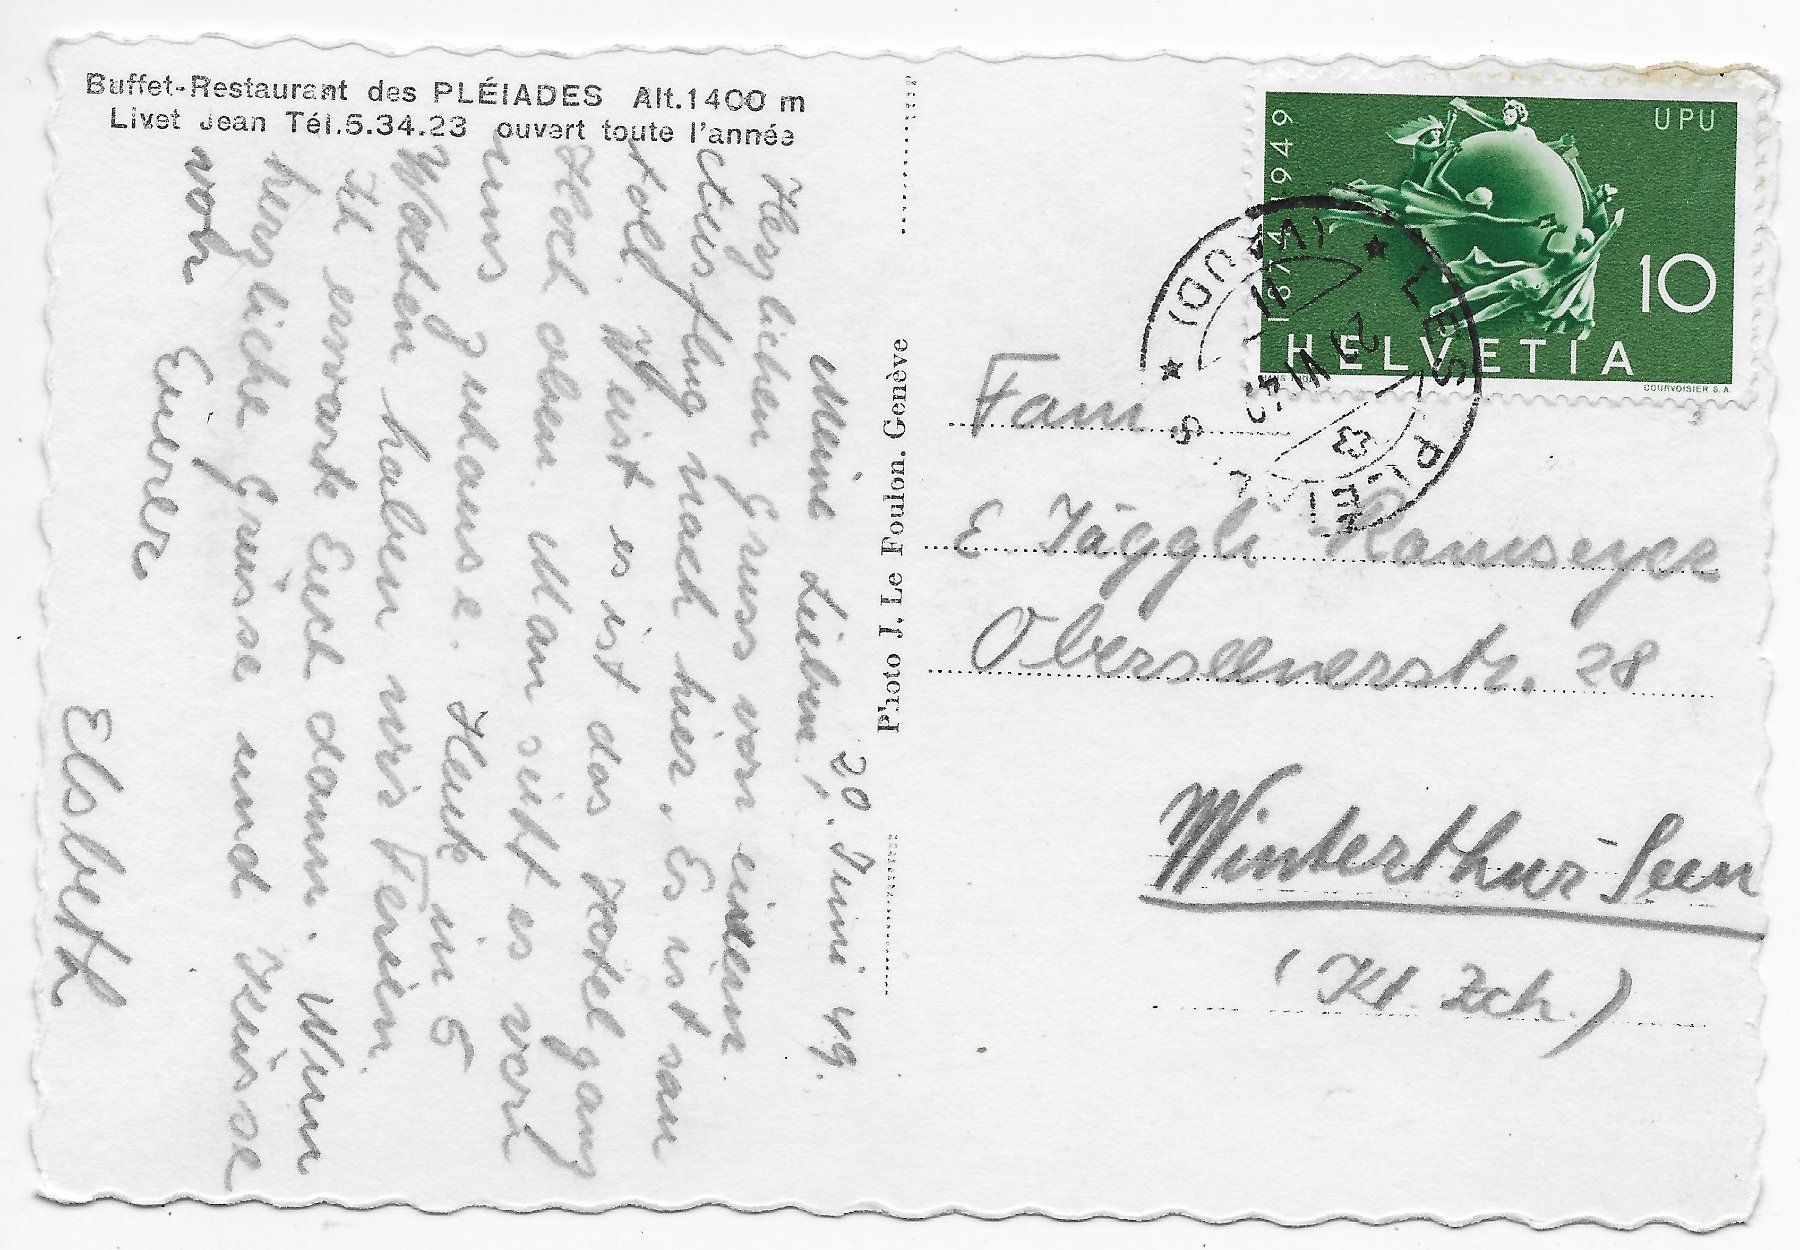 Buffet-Restaurant des PLÉIADES Alt.1400 m
Livet Jean Tél.5.34.23 ouvert toute l'année
20. Juni 49.
Meine Lieben!
Herzlichen Gruss von einem
Ausflug nach hier. Es ist
toll. ist es ist das Hotel ganz
Hoch oben. Man sieht es von
uns zudause. Heute in 5
Wochen haben wir Ferien.
Ich erwarte Euch dann. Nun
herzliche Grüsse und Küsse
von Eurer
Elsbeth
Photo J. Le Foulon. Genève
UPU
1874 1949
10
HELVETIA
COURVOISIER S.A.
LES PLÉIADES
(VAUD)
Fam
E Jäggli Ramseyer
Oberseenerstr. 28
Winterthur-Seen
(Kt. Zch.)